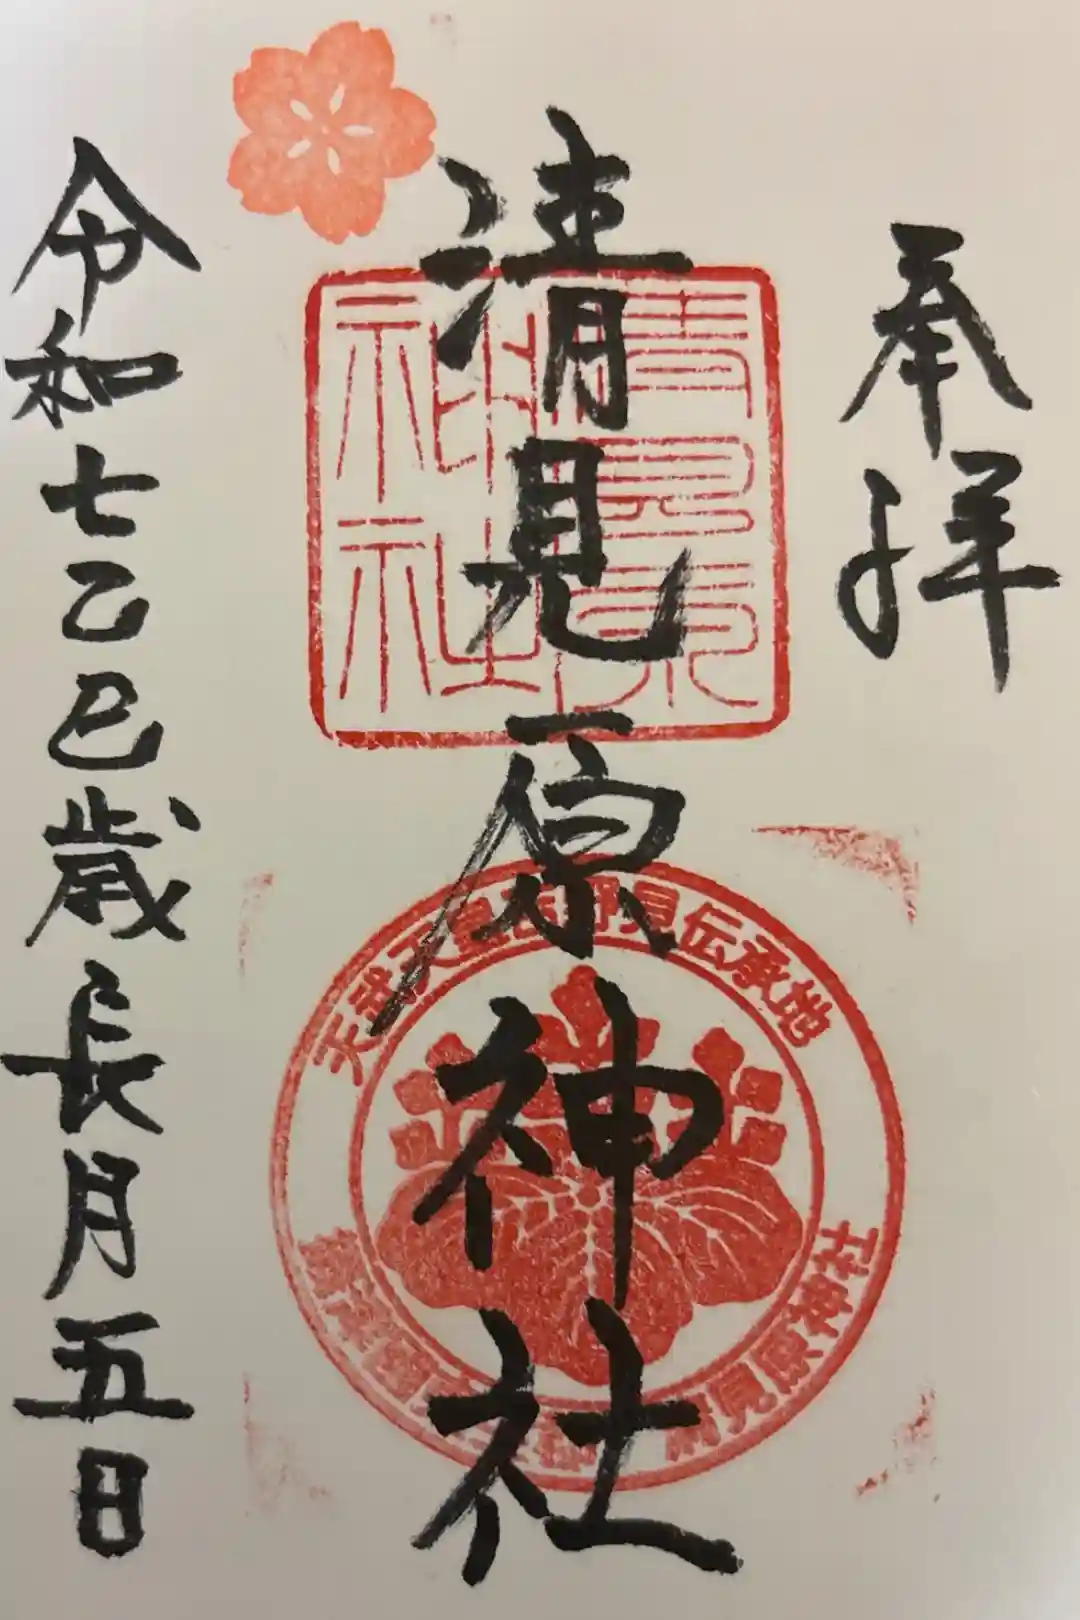 奉拝
清見原神社
令和七乙巳歳長月五日
清見原
神社
天武天皇吉野見伝承地
清見原神社